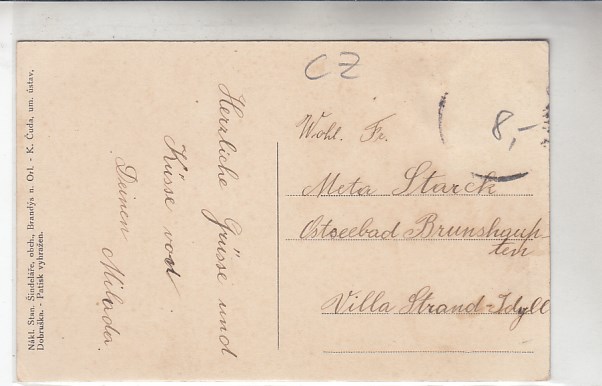 CZ
8,-
Herzliche Grüsse und
Küsse von
Deinen Milada.
Wohl. Fr.
Meta Starck
Ostseebad Brunshaup
ten
Villa Strand-Idyll
Nákl. Stan. Šindeláře, obch., Brandýs n. Orl. - K. Čuda, um. ústav,
Dobruška. - Patisk vyhražen.